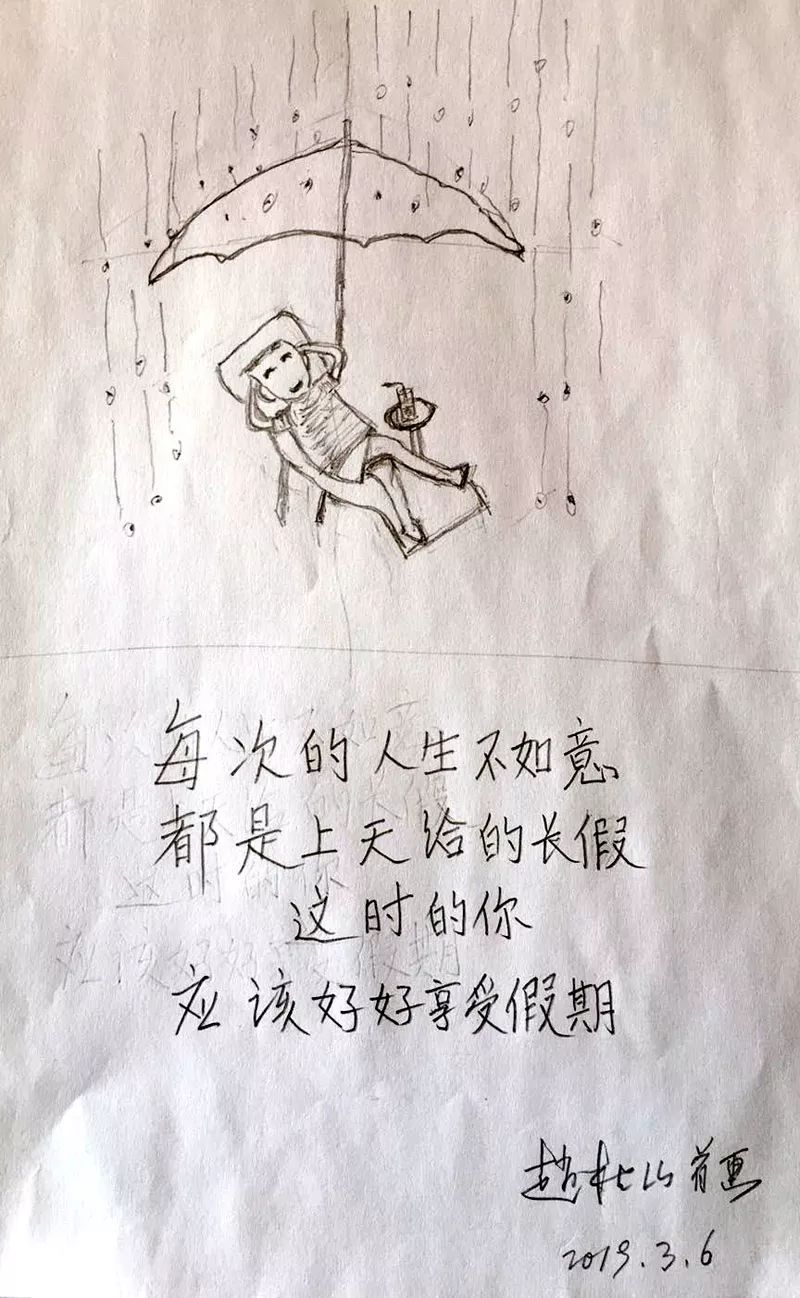 每次的人生不如意
都是上天给的长假
这时的你
应该好好享受假期
2019.3.6